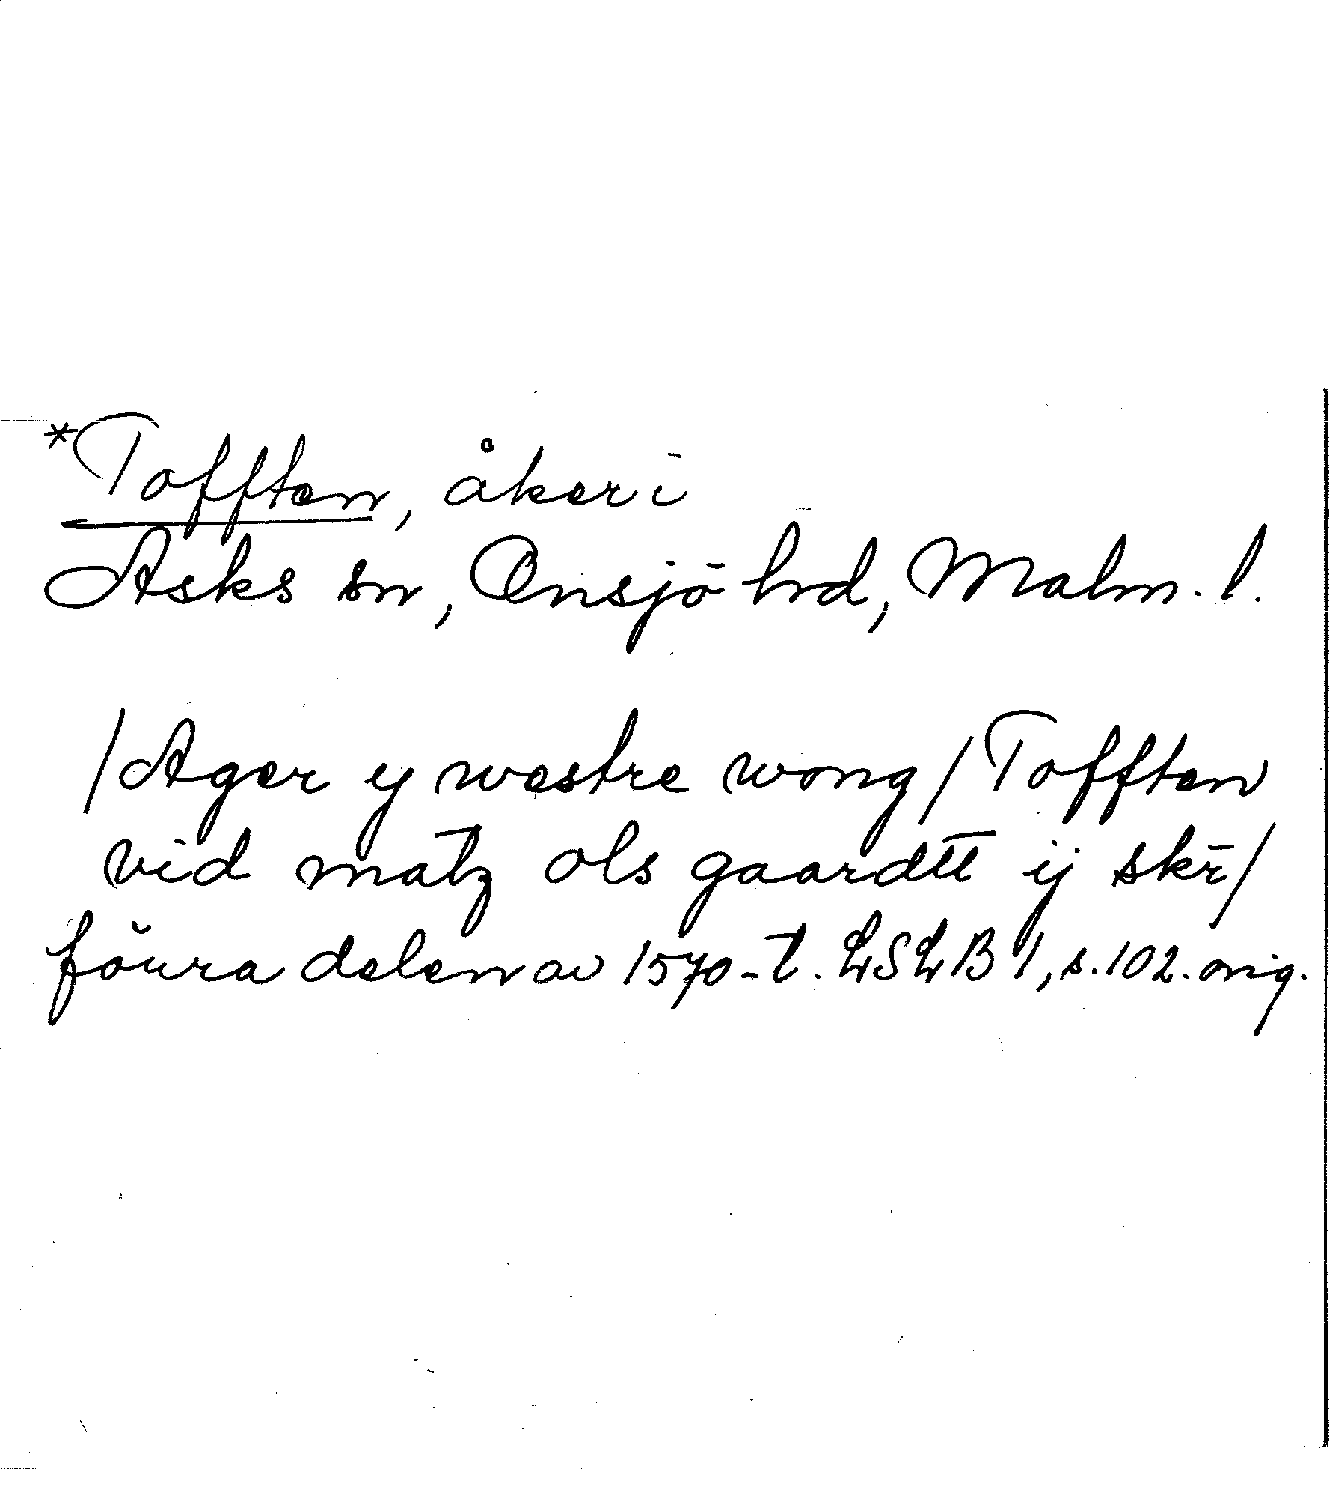 *Tofften, åker i
Asks sn, Onsjö hrd, Malm. l.
/Ager ij westre wong/ Tofften
vid matz ols gaardtt ij skr̄/
förra delen av 1570-t. LSLB 1, s. 102. orig.